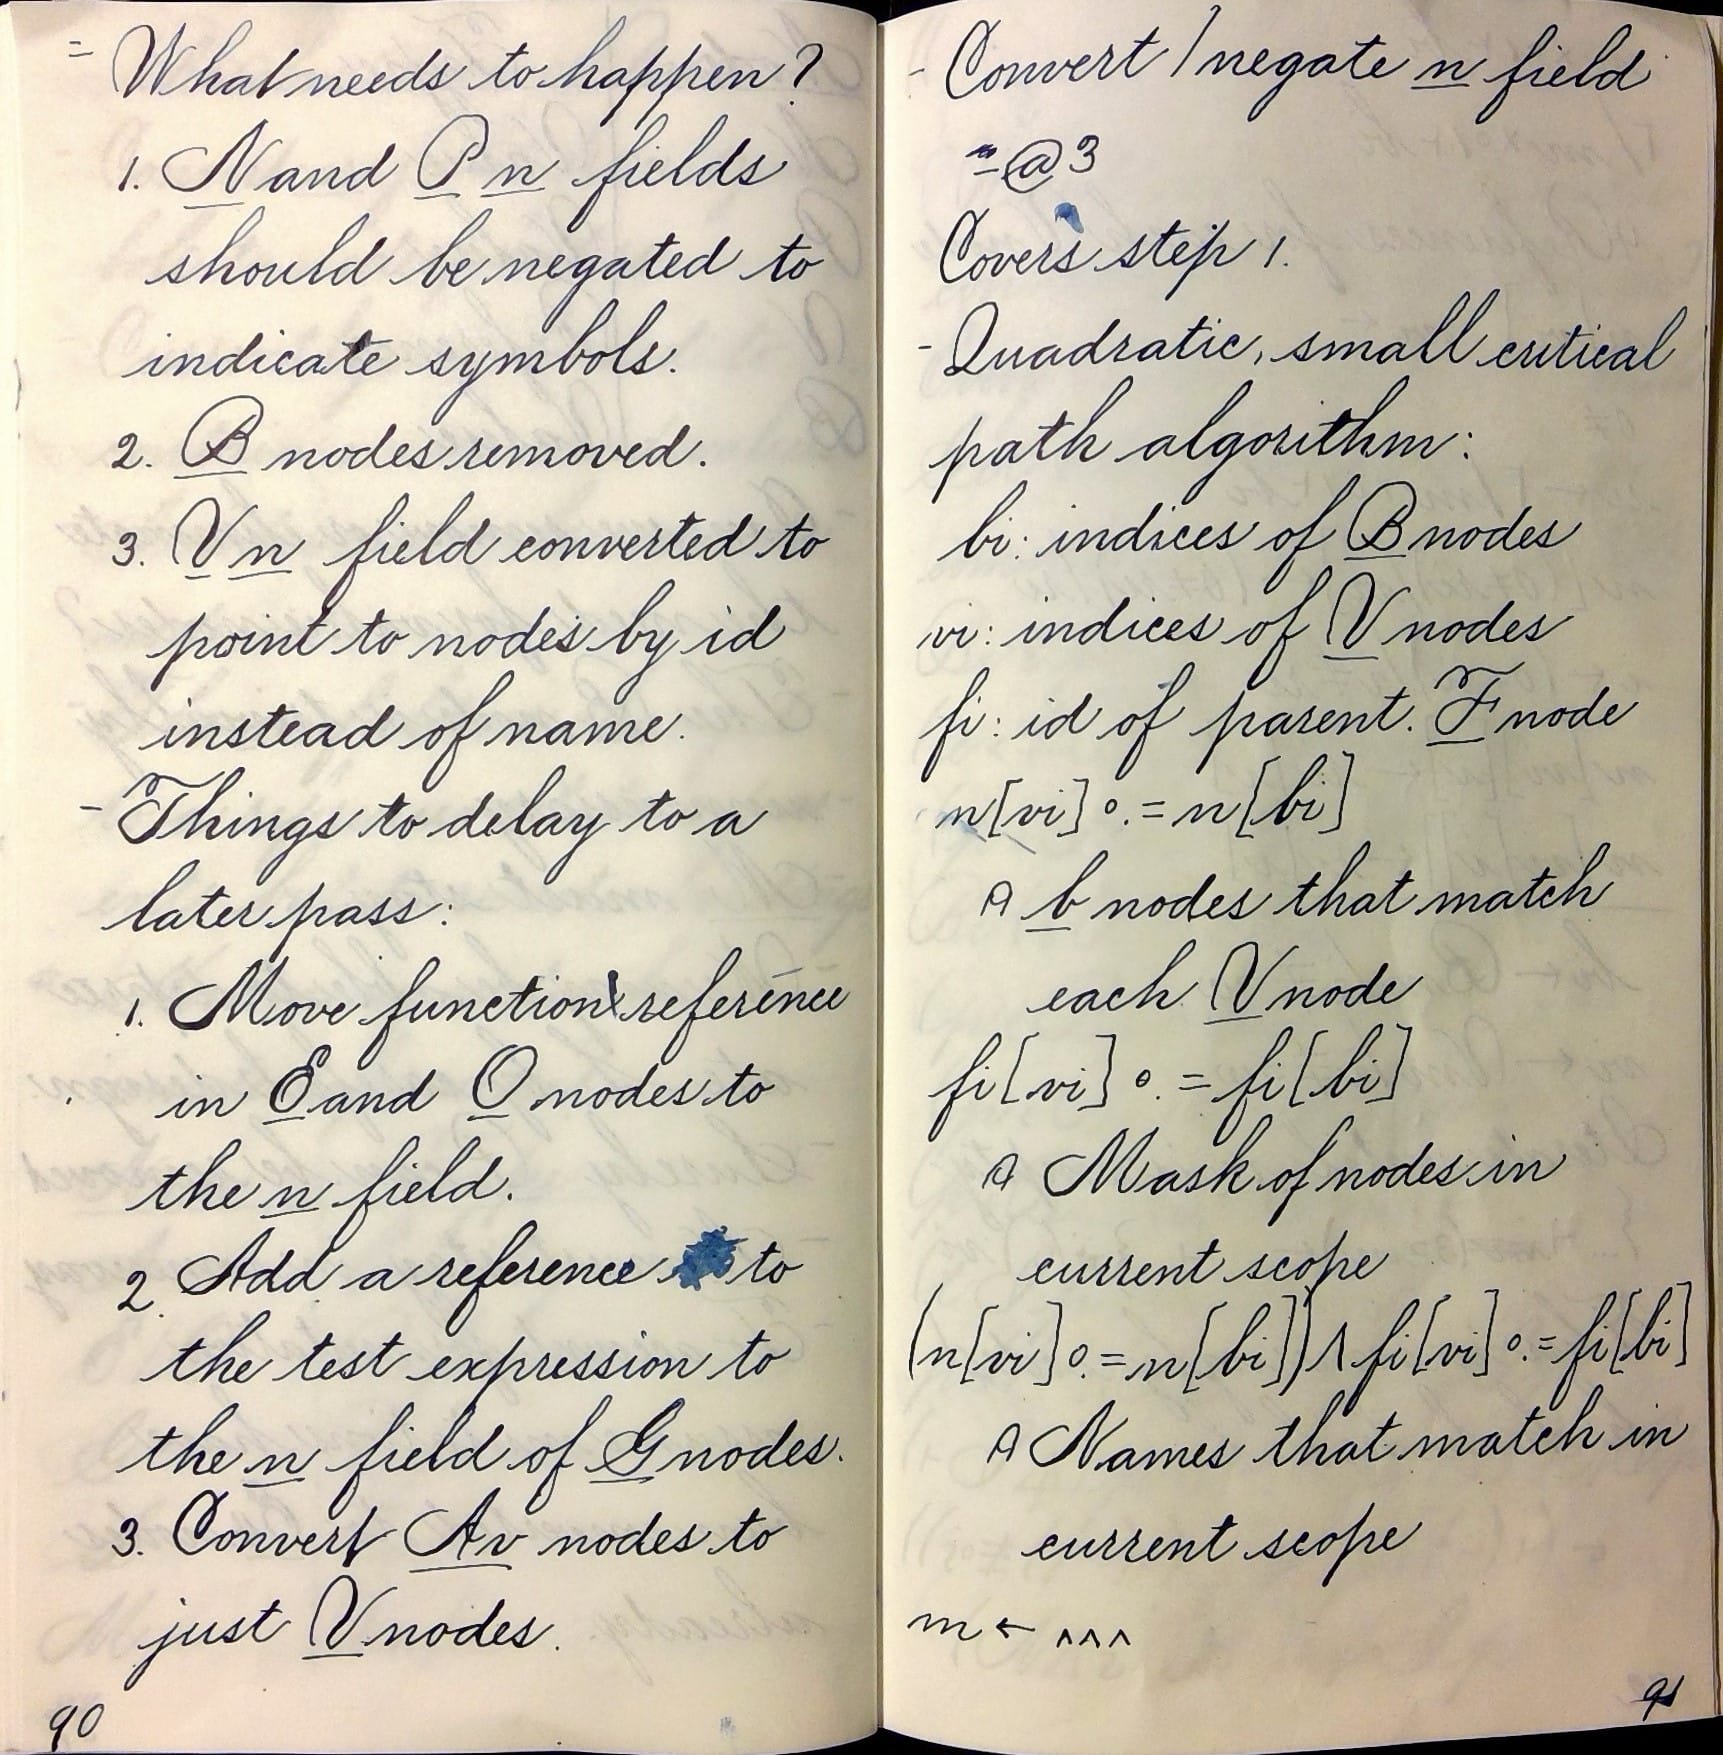 = What needs to happen?
1. N and P n fields
should be negated to
indicate symbols.
2. B nodes removed.
3. V n field converted to
point to nodes by id
instead of name.
- Things to delay to a
later pass:
1. Move function reference
in E and O nodes to
the n field.
2. Add a reference to
the test expression to
the n field of G nodes.
3. Convert Av nodes to
just V nodes.
90
- Convert / negate n field
@3
Covers step 1.
- Quadratic, small critical
path algorithm:
bi: indices of B nodes
vi: indices of V nodes
fi: id of parent F node
n[vi]∘.=n[bi]
⍝ b nodes that match
each V node
fi[vi]∘.=fi[bi]
⍝ Mask of nodes in
current scope
(n[vi]∘.=n[bi])∧fi[vi]∘.=fi[bi]
⍝ Names that match in
current scope
m ← ^^^
91